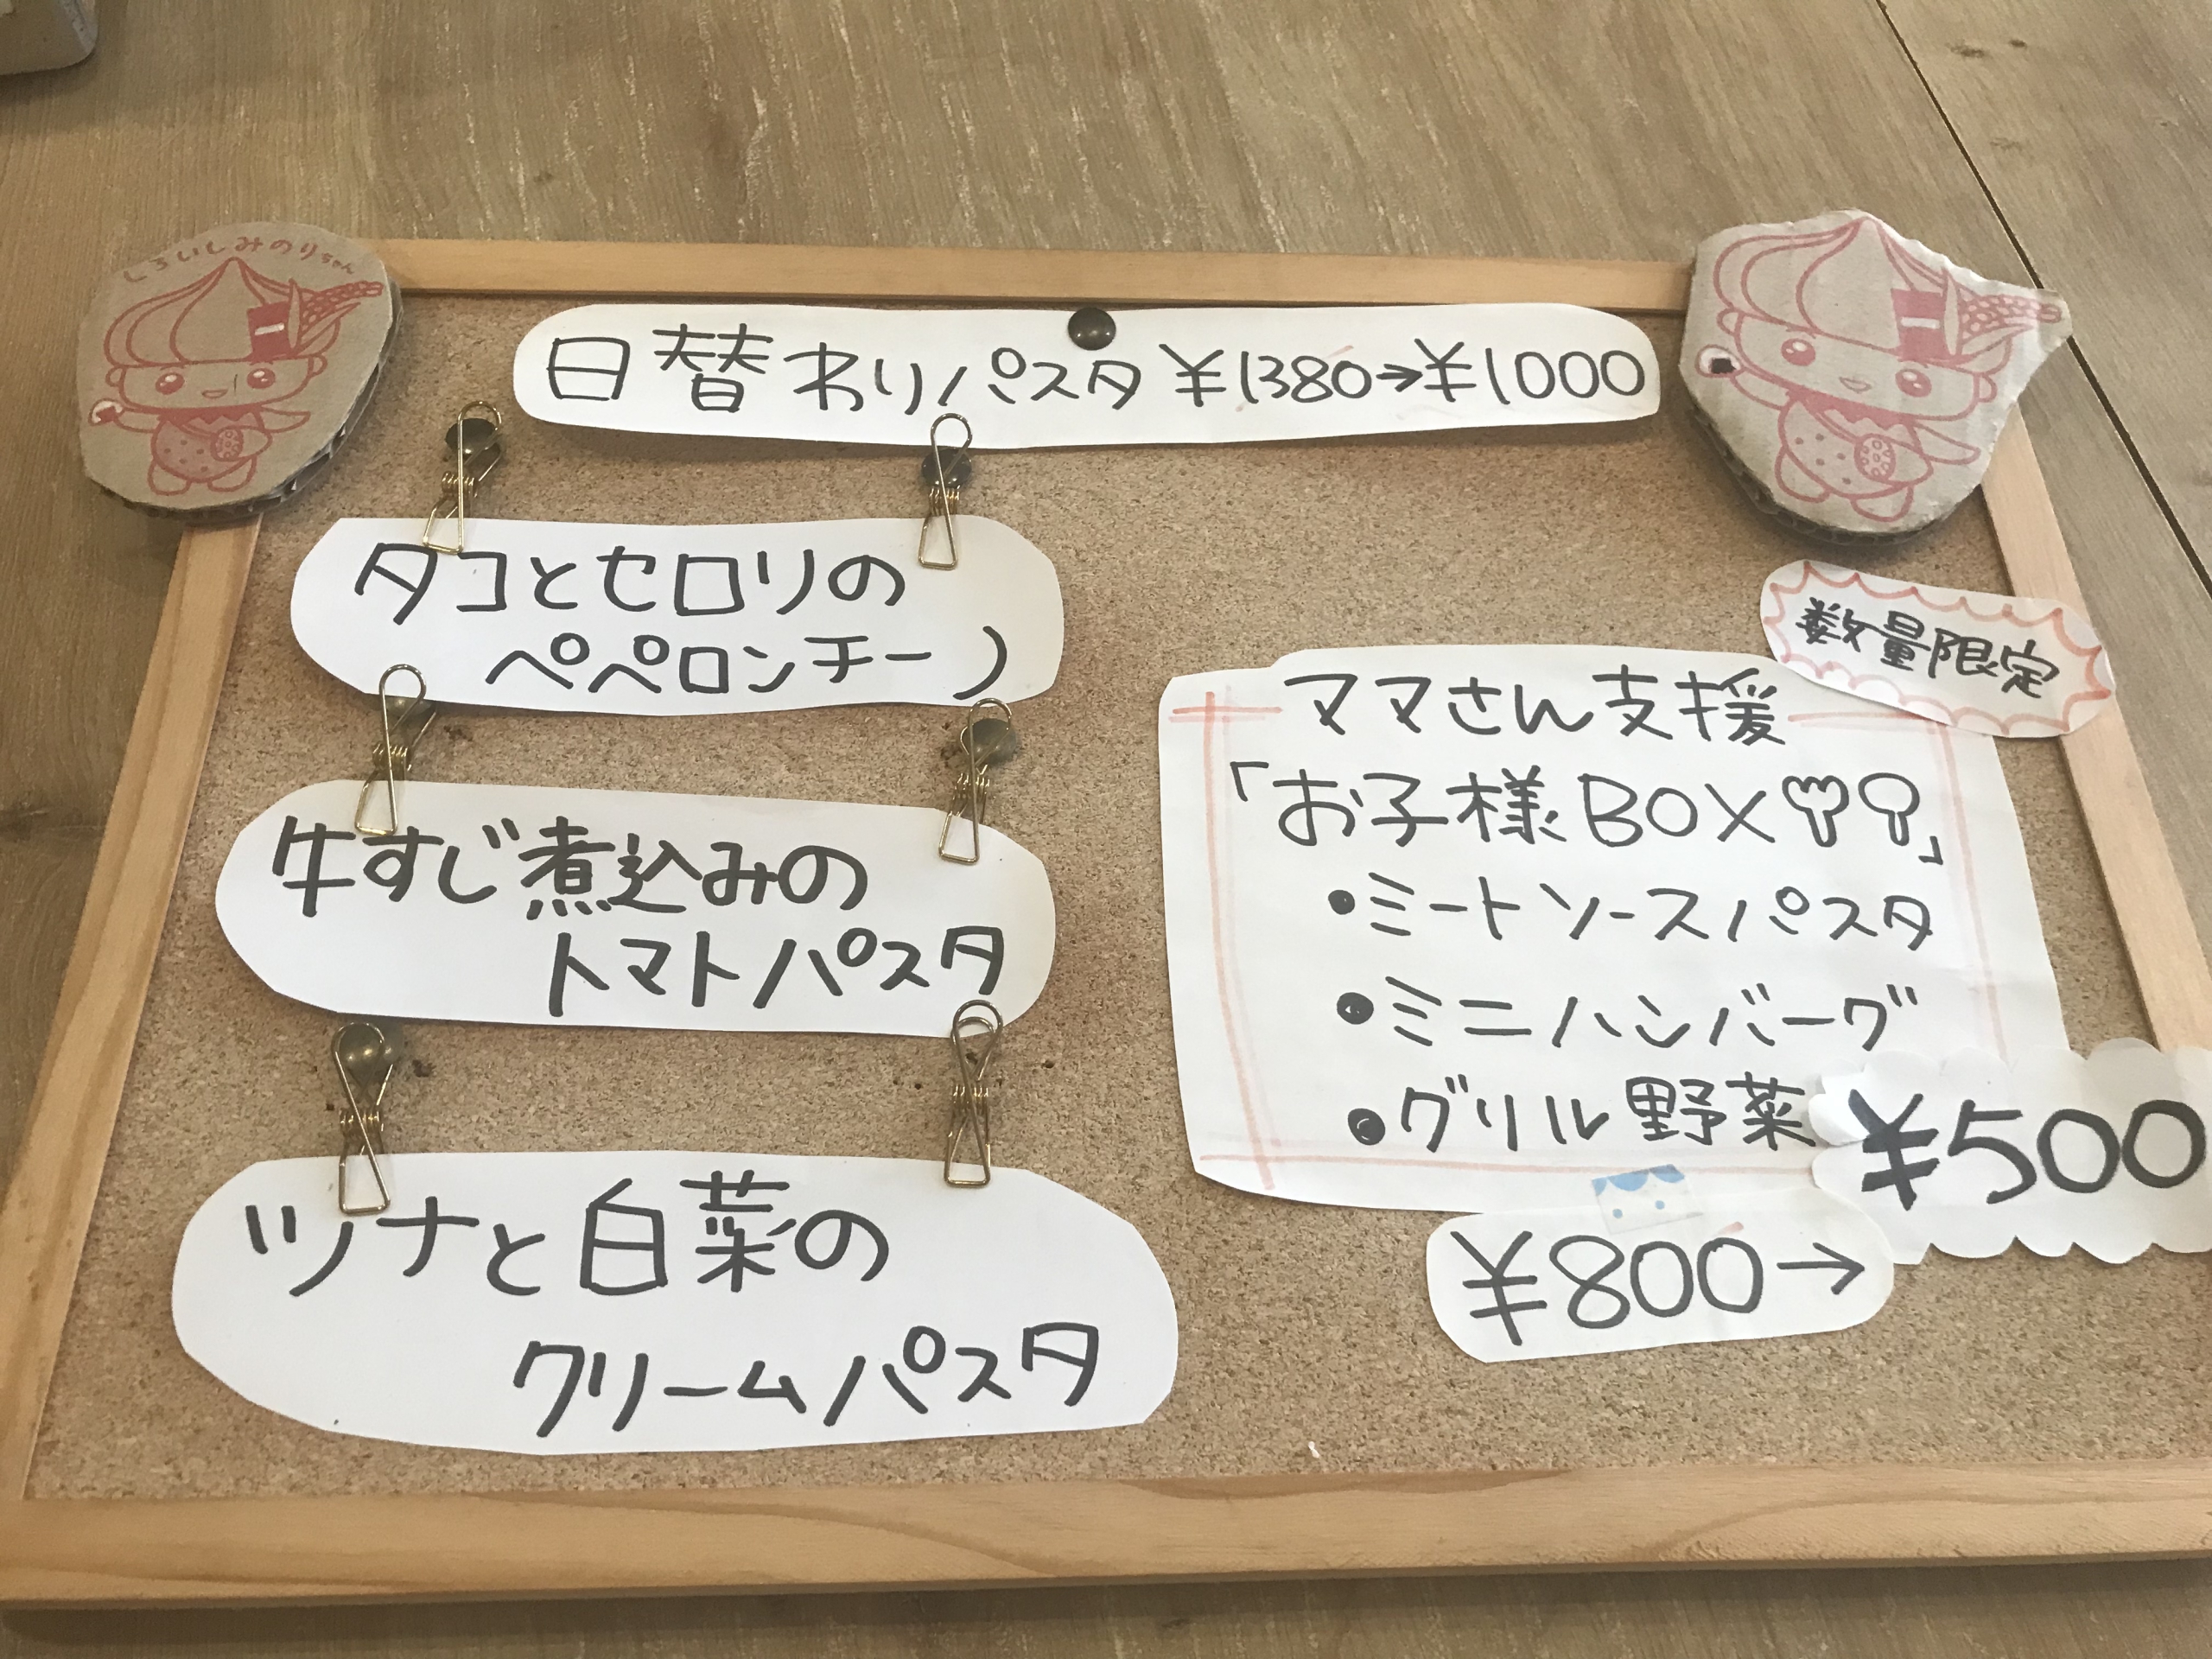 しろいしみのりちゃん
日替わりパスタ ¥1380→¥1000
タコとセロリの
ペペロンチーノ
牛すじ煮込みの
トマトパスタ
ツナと白菜の
クリームパスタ
数量限定
ママさん支援
「お子様BOX」
•ミートソースパスタ
•ミニハンバーグ
•グリル野菜
¥800→
¥500